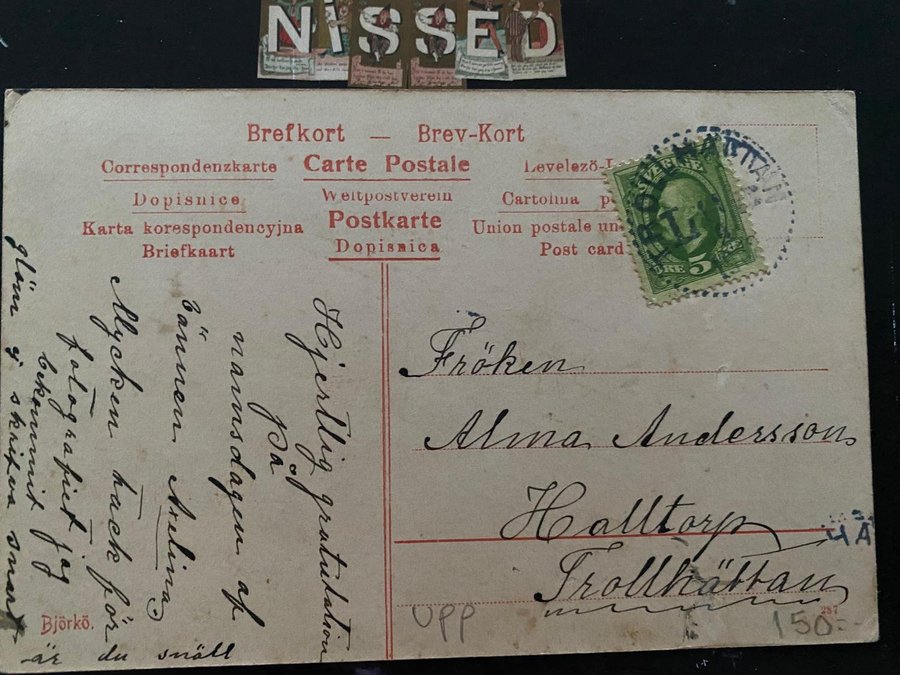 NiSSED
Brefkort — Brev-Kort
Correspondenzkarte Carte Postale
Dopisnice Weltpostverein Cartolina
Karta korespondencyjna Postkarte Union postale
Briefkaart Dopisnica Post card
SVERIGE
5 ÖRE
Hjertlig gratulation
på
namnsdagen af
vännen
Mycken tack för
fotografiet jag
bekommit
glöm ej skrifva snart
är du snäll
Fröken
Alma Andersson
Halltorp
Trollhättan
4A
Björkö.
UPP
287
150:-